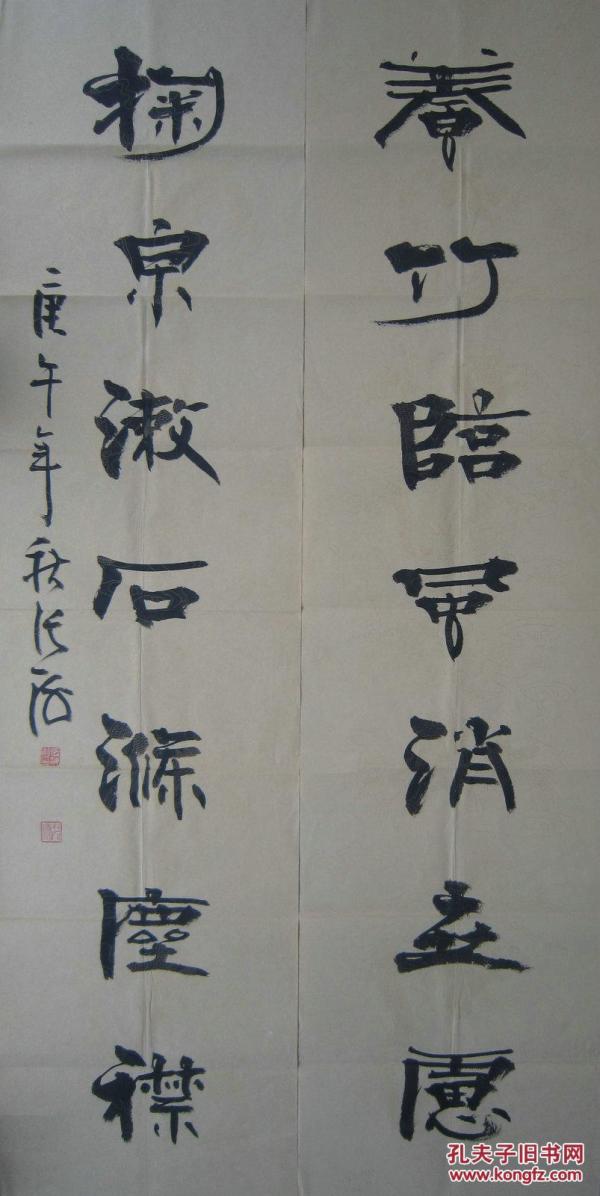 養竹臨風消世慮
掬泉漱石滌塵襟
庚午年秋张
孔夫子旧书网
www.kongfz.com